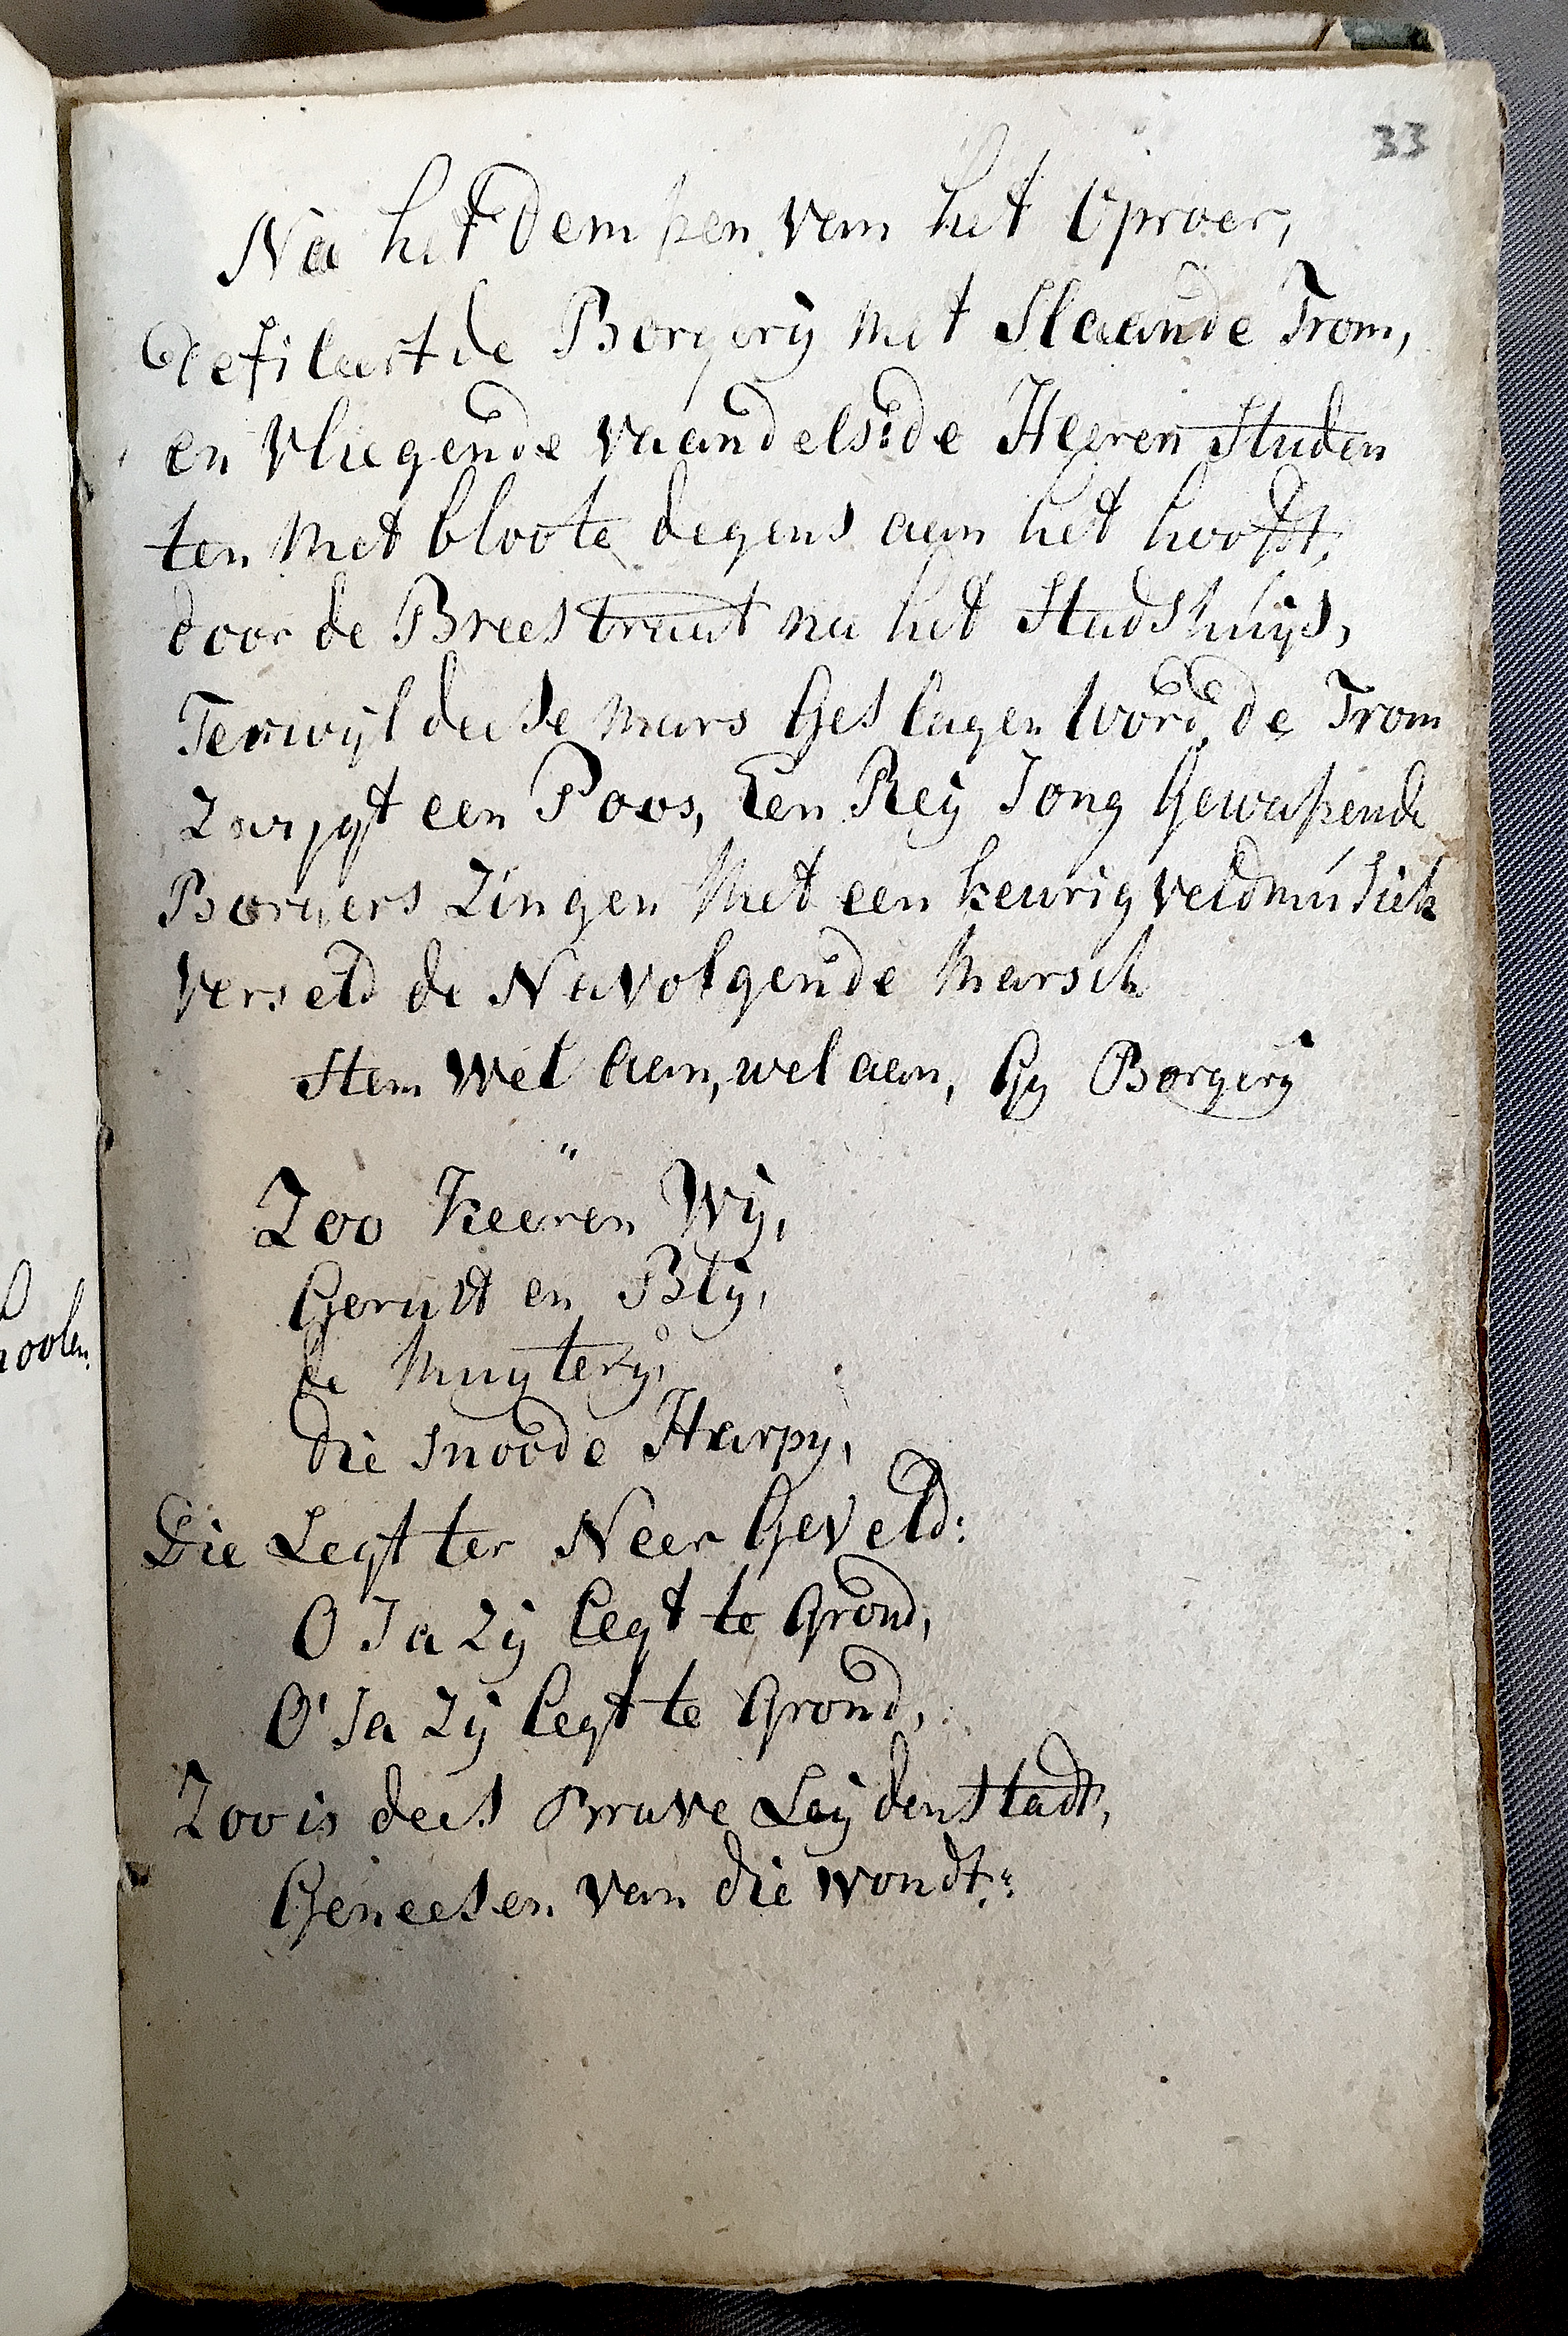 33
Na het dempen van het Oproer,
defileert de Borgerij met Slaande Trom,
en Vliegende Vaandels: de Heeren Studen
ten Met bloote degens aan het hooft,
door de Breestraat na het Stadshuijs,
Terwijl deese Mars Geslagen Word, de Trom
Zwijgt een Poos, Een Reij Jong Gewapende
Borgers Zingen Met een keurig veldmusick
Verseld de Navolgende Marsch
Stem Wel Aan, wel aan, Gy Borgerij
Zoo Keeren Wij,
Gerust en Blij,
de Muyterij,
die Snoode Harpy,
Die Legt ter Neer Geveld:
O Ja Zij Legt te Grond,
O' Ja Zij Legt te Grond,
Zoo is dees Brave Leijdenstadt,
Geneesen van die wondt:
hoolen.